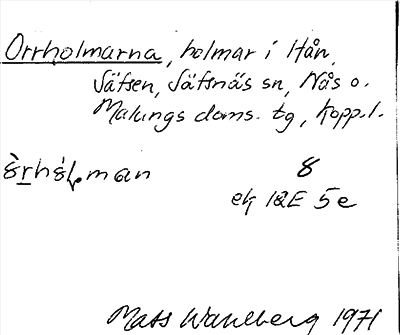 Orrholmarna, holmar i Hån,
Säfsen, Säfsnäs sn, Nås o.
Malungs doms. tg, Kopp.l.
8
ek 12E 5e
Mats Wahlberg 1971